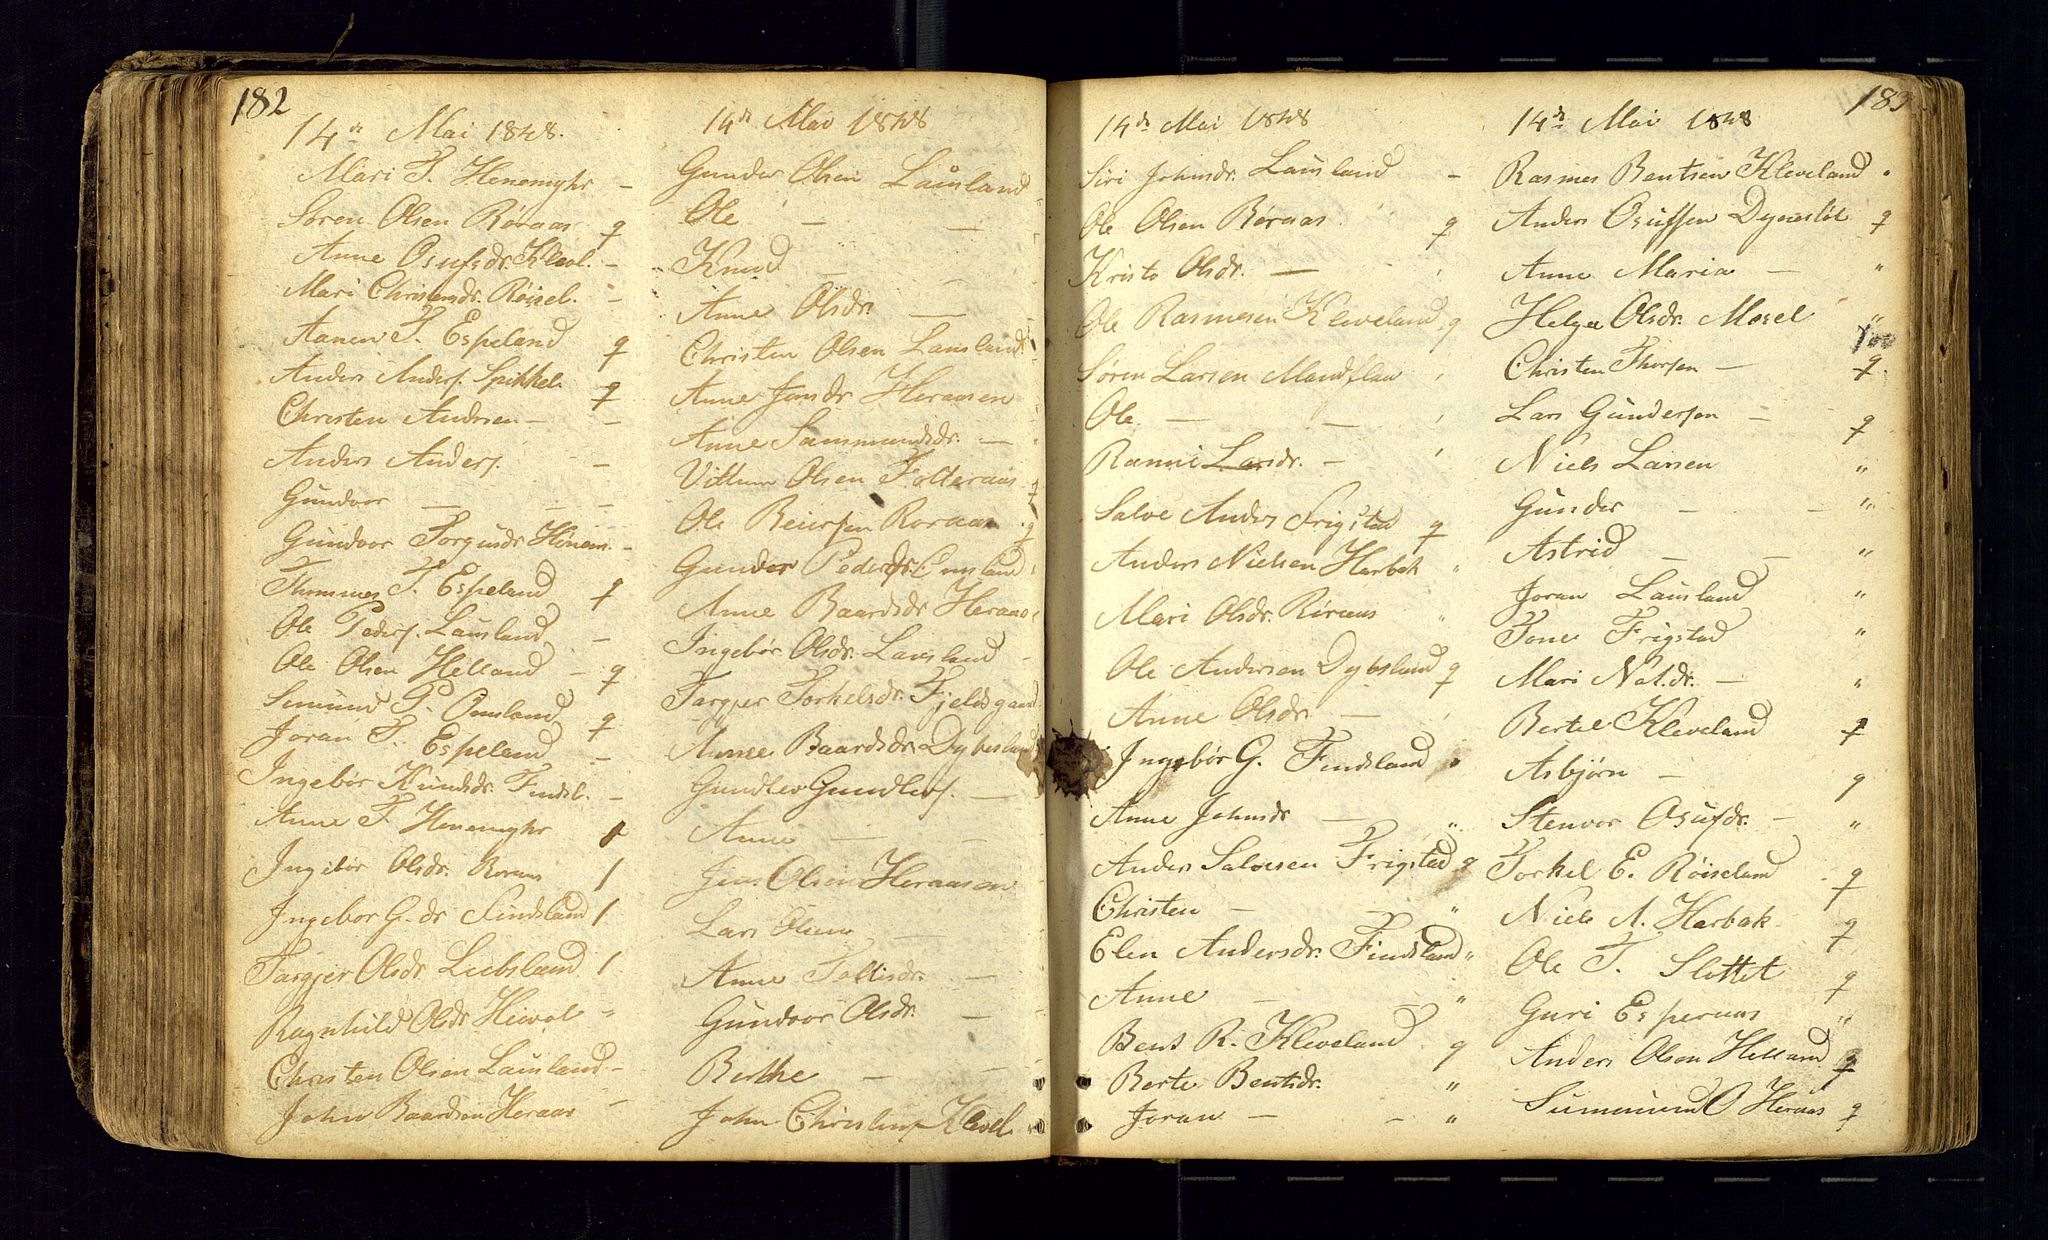 182
14de Mai 1848.
Mari T. Henemyhr –
Søren Olsen Røraas q
Anne Osufsdr. Klevl. –
Mari Christensdr. Røisel. –
Aanen T. Espeland q
Anders Anders. Spikkel. q
Christen Andersen – –
Anders Anders. –
Gundvor – – –
Gundvor Torgusdr Hönem. –
Thommes T. Espeland q
Ole Peders. Lauland –
Ole Olsen Helland – q
Simund P. Omsland q
Joran T. Espeland –
Ingebør Knudsdr Findsl. –
Anne T. Henemyhr 1
Ingebør Olsdr. Roraas 1
Ingebor G.dr Findsland 1
Targjer Olsdr Liebsland 1
Ragnhild Olsdr Heivol "
Christen Olsen Lauland –
John Baardsen Heraas –
14de Mai 1848
Gunder Olsen Lauland
Ole – –
Knud – –
Anne Olsdr. –
Christen Olsen Lauland
Anne Jensdr Heraasen
Anne Sammundsdr. –
Vittum Olsen Folleraas q
Ole Reiersen Roraas q
Gunder Peders. Omsland
Anne Baardsdr Heraas
Ingebør Olsdr. Lauland
Targjer Torkelsdr. Fjeldsgaard
Anne Baardsdr Dybesland
Gundlev Gundlevs. –
Anne – –
Jens Olsen Heraasen
Lars Olsen –
Anne Tellisdr. –
Gundvor Olsdr. –
Berthe – –
John Christens Klevel
183
14de Mai 1848
Siri Johnsdr. Lauland –
Ole Olsen Røraas q
Kristo Olsdr. –
Ole Rasmesen Kleveland q
Søren Larsen Mandflaa
Ole – –
Rannei Larsdr. –
Salve Anders Frigstad q
Anders Nielsen Harbak "
Mari Olsdr. Röraas "
Ole Andersen Dybsland q
Anne Olsdr –
Ingebör G. Findsland "
Anne Johnsdr – "
Anders Salvesen Frigstad q
Christen – – "
Elen Andersdr. Findsland "
Anne – – "
Bent R. Kleveland q
Berte Bentsdr. "
Joran – – "
14de Mai 1848
Rasmes Bentsen Kleveland "
Anders Osufsen Dyneslöt q
Anne Maria – "
Helge Olsdr. Mosel "
100
Christen Thorsen – q
Lars Gundersen – q
Niels Larsen "
Gunder – – "
Astrid – – "
Joran Lauland "
Tone Frigstad "
Mari Nat.dr. – "
Bertel Kleveland q
Asbjörn – q
Stenvor Osufsdr. – "
Torkel E. Röiseland q
Niels A. Harbak q
Ole T. Slettet q
Guri Esperaas "
Anders Olsen Helland q
Summund O Heraas q